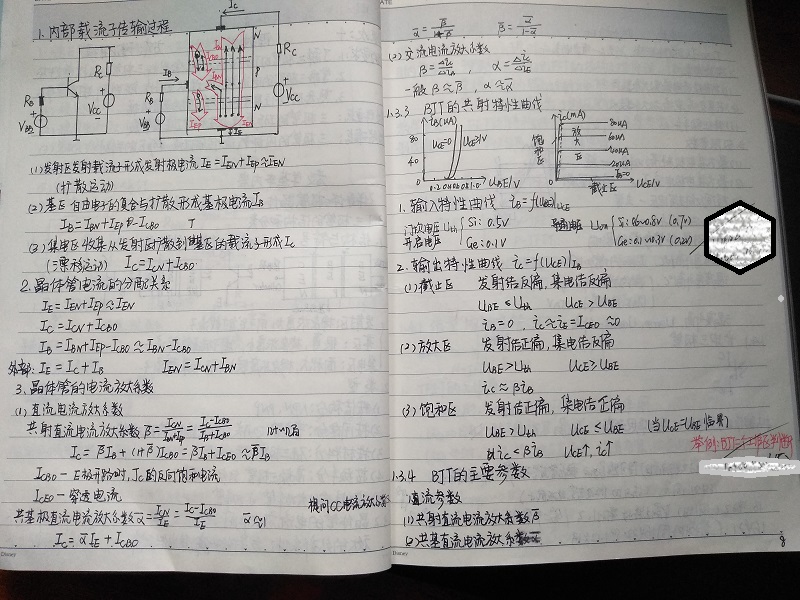 1. 内部载流子传输过程
IC
N
P
N
RC
VCC
IB
RB
VBB
IE
IEP
IBN
RC
RB
VCC
VBB
(1)发射区发射载流子形成发射极电流 IE = IEN+IEP ≈ IEN
(扩散运动)
(2)基区自由电子的复合与扩散形成基极电流 IB
IB = IBN+IEP-ICBO
(3)集电区收集从发射区扩散到基区的载流子形成 IC
(漂移运动) IC = ICN+ICBO
2. 晶体管电流的分配关系
IE = IEN+IEP ≈ IEN
IC = ICN+ICBO
IB = IBN+IEP-ICBO ≈ IBN-ICBO
外部: IE = IC+IB IEN = ICN+IBN
3. 晶体管的电流放大系数
(1)直流电流放大系数
共射直流电流放大系数 β̄ = ICN/(IBN+IEP) = (IC-ICBO)/(IB+ICBO)
IC = β̄IB + (1+β̄)ICBO = β̄IB+ICEO ≈ β̄IB
ICBO - E极开路时, IC的反向饱和电流
ICEO - 穿透电流
提问CC电流放大系数
共基极直流电流放大系数 ᾱ = ICN/IE = (IC-ICBO)/IE ᾱ≈1
IC = ᾱIE + ICBO
Disney
ᾱ = β̄/(1+β̄) β̄ = ᾱ/(1-ᾱ)
(2)交流电流放大系数
β = ΔiC/ΔiB, α = ΔiC/ΔiE
一般 β≈β̄, α≈ᾱ
1.3.3 BJT的共射特性曲线
iB(uA)
80
40
UCE=0
UCE≥1V
0 0.2 0.4 0.6 0.8 1.0
UBE/V
iC(mA)
饱和区
放大区
80uA
60uA
40uA
20uA
iB=0
0
截止区
UCE/V
1. 输入特性曲线 iB = f(UBE)|UCE
门坎电压 Uth Si: 0.5V
开启电压 Ge: 0.1V
导通电压 Uon Si: 0.6~0.8V (0.7V)
Ge: 0.1~0.3V (0.2V)
2. 输出特性曲线 iC = f(UCE)|IB
(1)截止区 发射结反偏, 集电结反偏
UBE ≤ Uth UCE > UBE
iB = 0, iC ≈ iE = ICEO ≈ 0
(2)放大区 发射结正偏, 集电结反偏
UBE > Uth UCE ≥ UBE
iC ≈ βiB
(3)饱和区 发射结正偏, 集电结正偏
UBE > Uth UCE ≤ UBE (当UCE=UBE临界)
iC < βiB UCE↑, iC↑
举例:BJT工作区判断
1.3.4 BJT的主要参数
直流参数
(1)共射直流电流放大系数 β̄
(2)共基直流电流放大系数
Disney
8